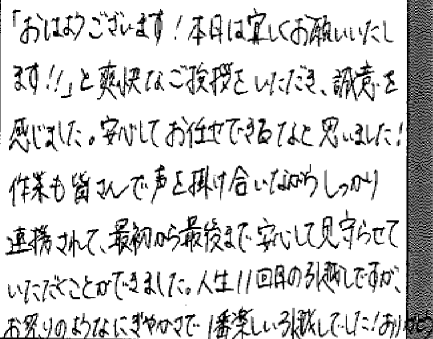 「おはようございます！本日は宜しくお願いいたし
ます!!」と爽快なご挨拶をいただき、誠意を
感じました。安心してお任せできるなと思いました！
作業も皆さんで声を掛け合いながらしっかり
連携されて、最初から最後まで安心して見守らせて
いただくことができました。人生11回目の引越しですが、
お祭りのようなにぎやかさで1番楽しい引越しでした！ありがとう